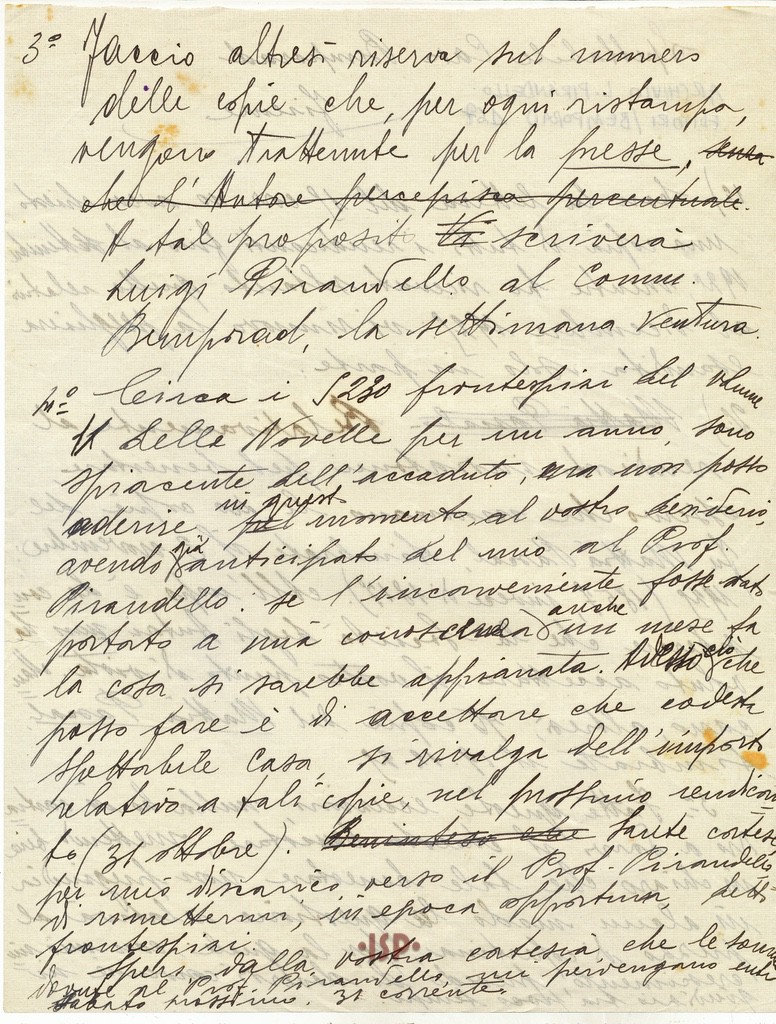 3º Faccio altresì riserva sul numero
delle copie che, per ogni ristampa,
vengono trattenute per la presse, senza
che l'Autore percepisca percentuale.
A tal proposito Vi scriverà
Luigi Pirandello al Comm.
Bemporad, la settimana ventura.
4º Circa i 5230 frontespizi del volume
II delle Novelle per un anno, sono
spiacente dell'accaduto, ma non posso
aderire in questo momento, al vostro desiderio,
avendo già anticipato del mio al Prof.
Pirandello: se l'inconveniente fosse stato
portato a mia conoscenza anche un mese fa
la cosa si sarebbe appianata. Adesso ciò che
posso fare è di accettare che codesta
spettabile Casa, si rivalga dell'importo
relativo a tali copie, nel prossimo rendicon
to (31 ottobre). Beninteso che Siate cortese
per mio discarico verso il Prof. Pirandello
di rimettermi, in epoca opportuna, detti
frontespizi.
Spero dalla vostra cortesia che le somme
dovute al Prof. Pirandello, mi pervengano entro
Sabato prossimo. 31 corrente.
ISP